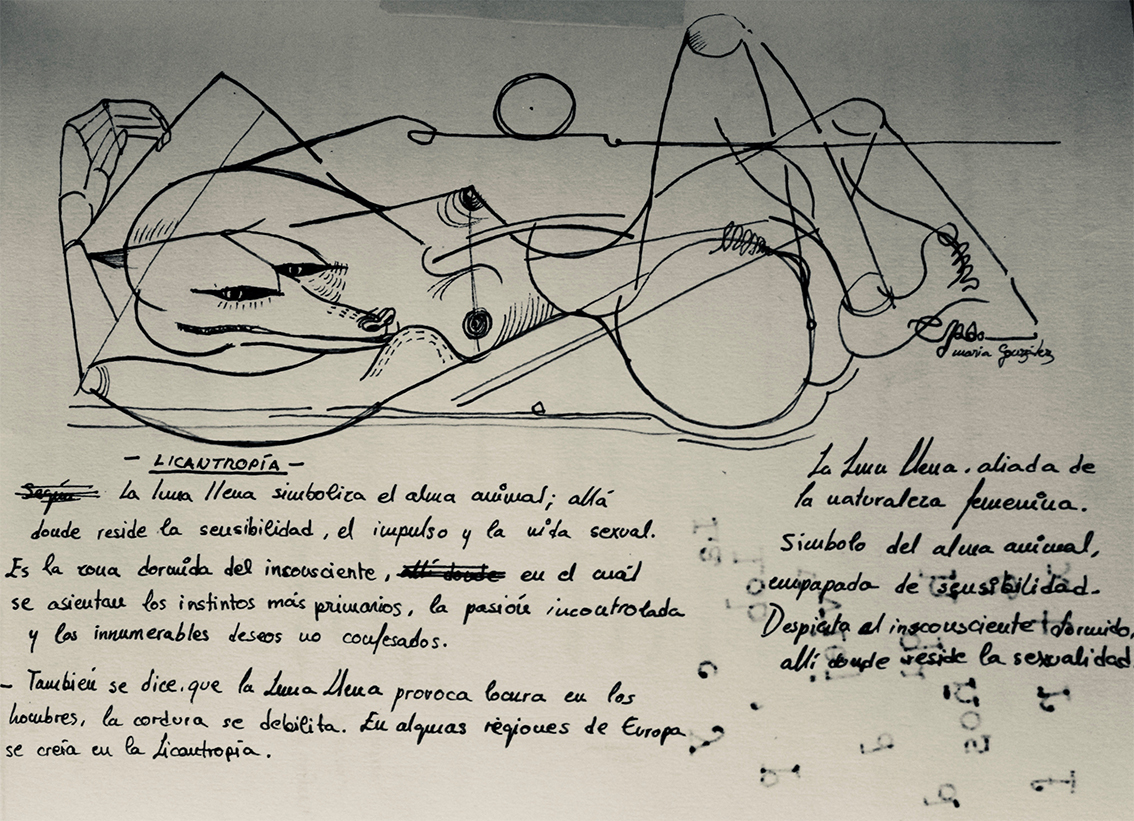 maria González
- LICANTROPÍA -
Según La luna llena simboliza el alma animal; allá
donde reside la sensibilidad, el impulso y la vida sexual.
Es la zona dormida del insconsciente, allí donde en el cuál
se asientan los instintos más primarios, la pasión incontrolada
y los innumerables deseos no confesados.
- También se dice, que la Luna Llena provoca locura en los
hombres, la cordura se debilita. En algunas regiones de Europa
se creía en la Licantropía.
La Luna Llena, aliada de
la naturaleza femenina.
Símbolo del alma animal,
empapada de sensibilidad.
Despierta el insconsciente dormido,
allí donde reside la sexualidad